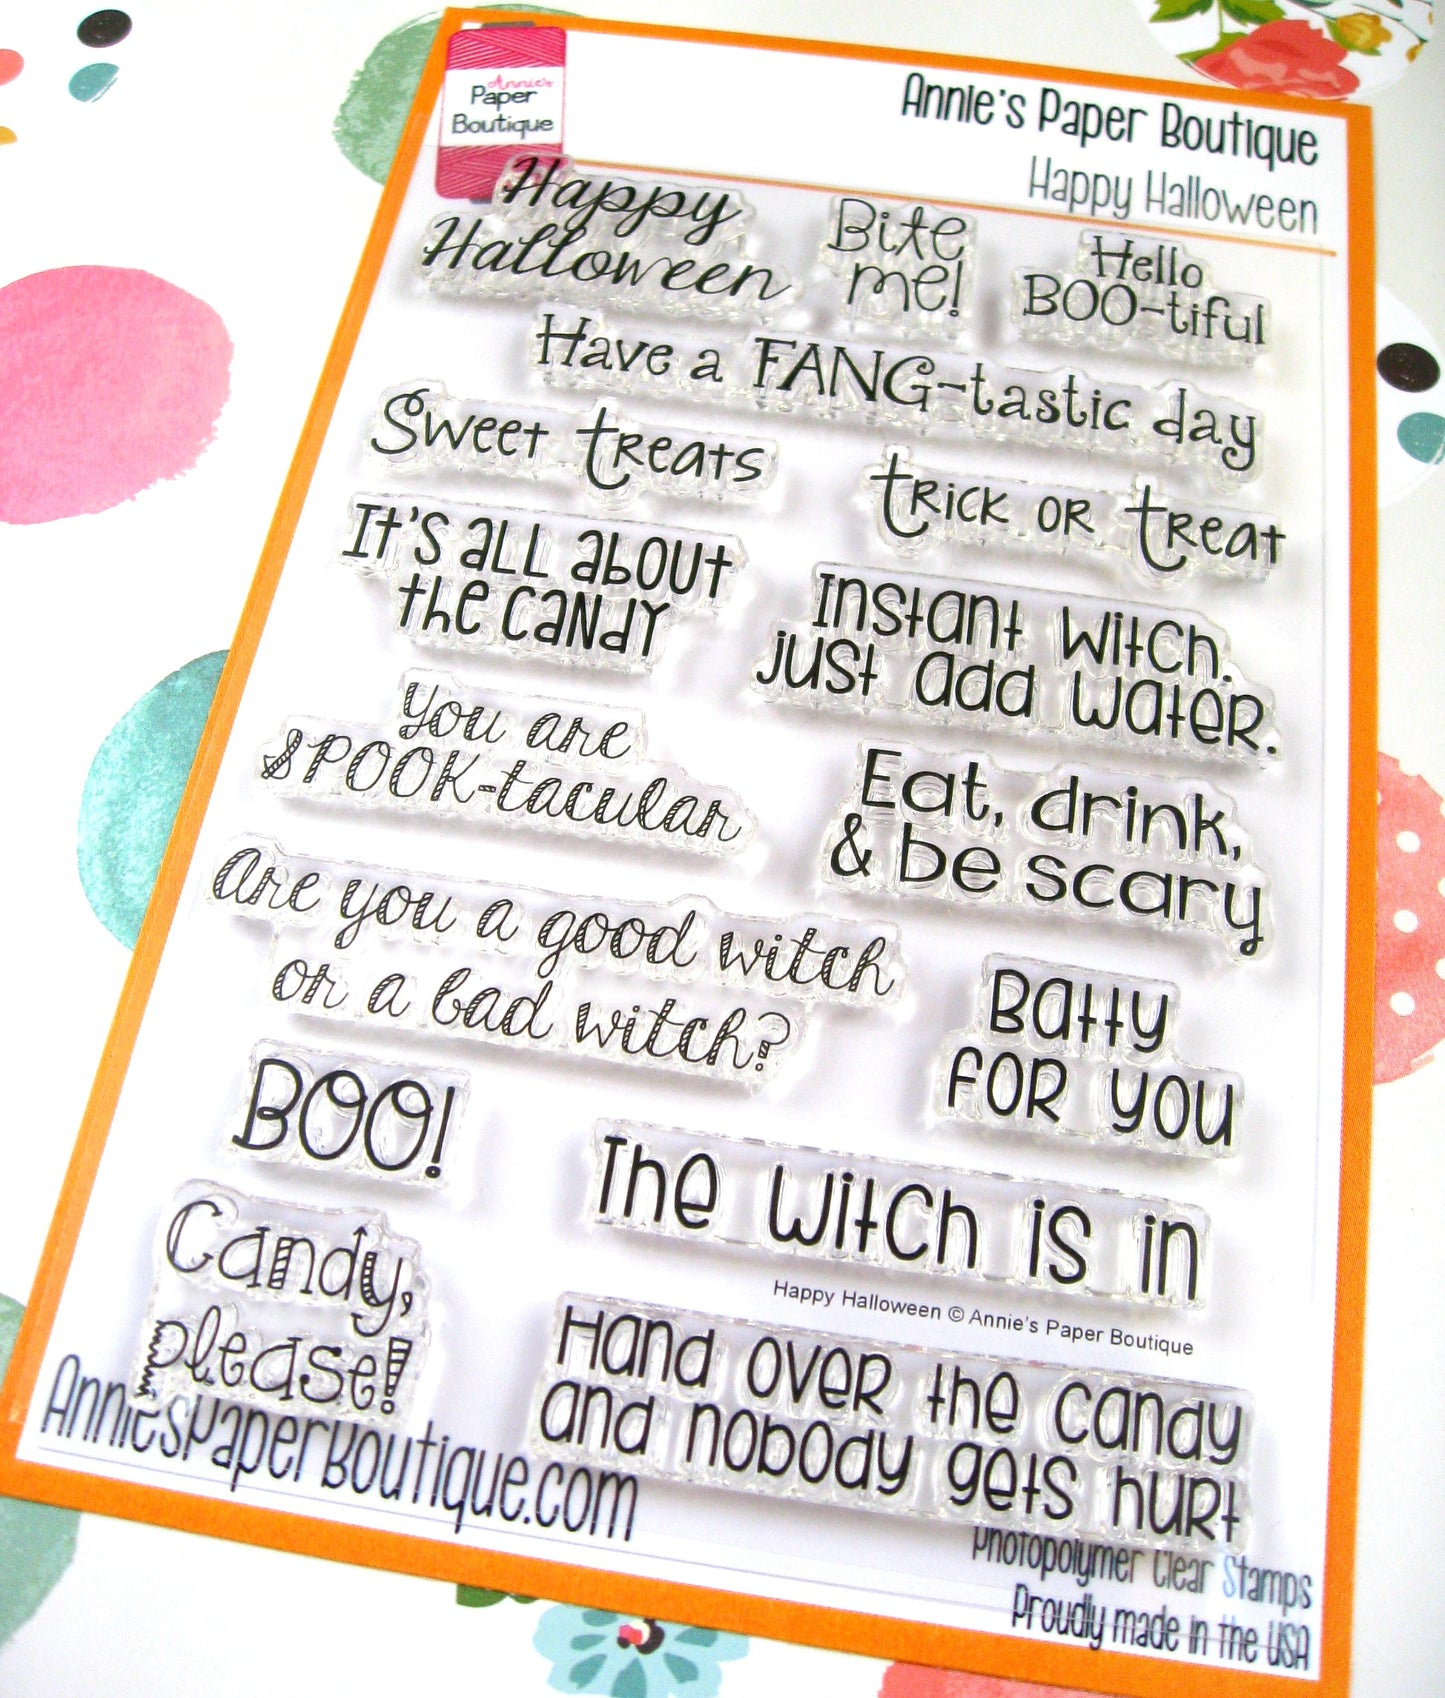 Annie's
Paper
Boutique
Annie's Paper Boutique
Happy Halloween
Happy
Halloween
Bite
me!
Hello
BOO-tiful
Have a FANG-tastic day
Sweet treats
trick or treat
It's all about
the candy
Instant witch.
just add water.
You are
SPOOK-tacular
Eat, drink,
& be scary
Are you a good witch
or a bad witch?
Batty
for you
BOO!
The witch is in
Candy,
please!
Happy Halloween © Annie's Paper Boutique
Hand over the candy
and nobody gets hurt
AnniesPaperBoutique.com
Photopolymer Clear Stamps
Proudly made in the USA